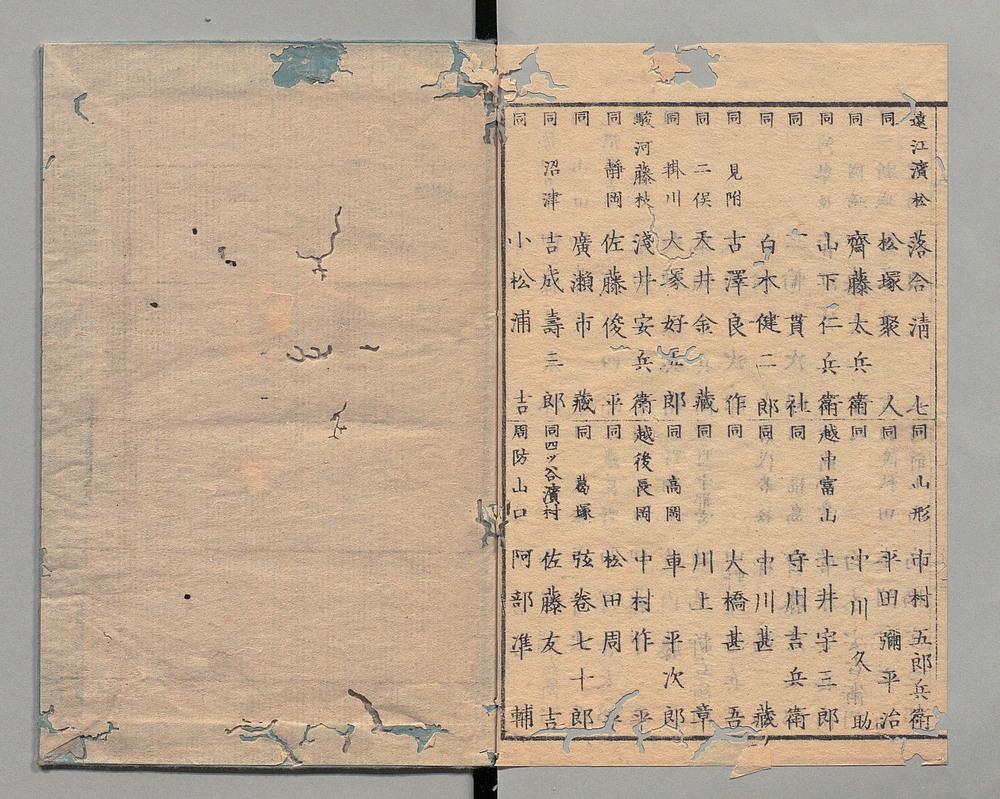 遠江濱松 落合清七
同 松塚聚人
同 齊藤太兵衞
同 山下仁兵衞
同 貫社
同 白木健二郎
同 見附 古澤良作
同 二俣 天井金藏
同 掛川 大塚好五郎
駿河藤枝 淺井安兵衞
同 靜岡 佐藤俊平
同 廣瀨市藏
同 沼津 吉成壽三郎
同 小松浦吉
同 山形 市村五郎兵衞
同 平田彌平治
同 中川久助
越中富山 土井宇三郎
同 守川吉兵衞
同 中川甚藏
同 大橋甚吾
同 川上章
同 高岡 車平次郎
越後長岡 中村作平
同 松田周
同 葛塚 弦卷七十郎
同四ッ谷濱村 佐藤友吉
周防山口 阿部準輔